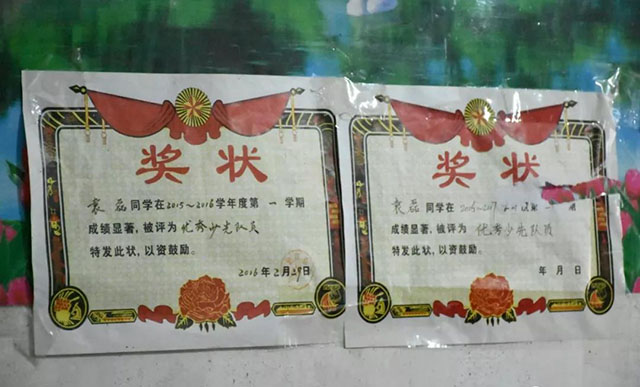 奖状
袁磊同学在2015~2016学年度第一学期
成绩显著，被评为优秀少先队员
特发此状，以资鼓励。
2016年2月29日
奖状
袁磊同学在
成绩显著，被评为优秀少先队员
特发此状，以资鼓励。
年月日